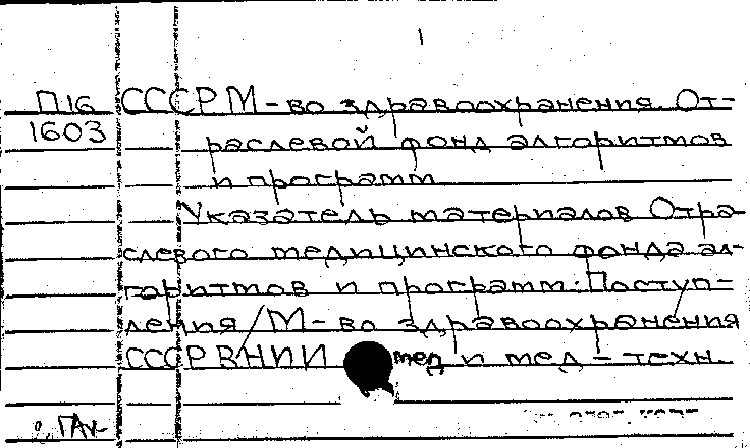 1
П16 СССР М-во здравоохранения. От-
1603 раслевой фонд алгоритмов
и программ
Указатель материалов Отра-
слевого медицинского фонда ал-
горитмов и программ: Поступ-
ления / М-во здравоохранения
СССР ВНИИ мед и мед-техн.